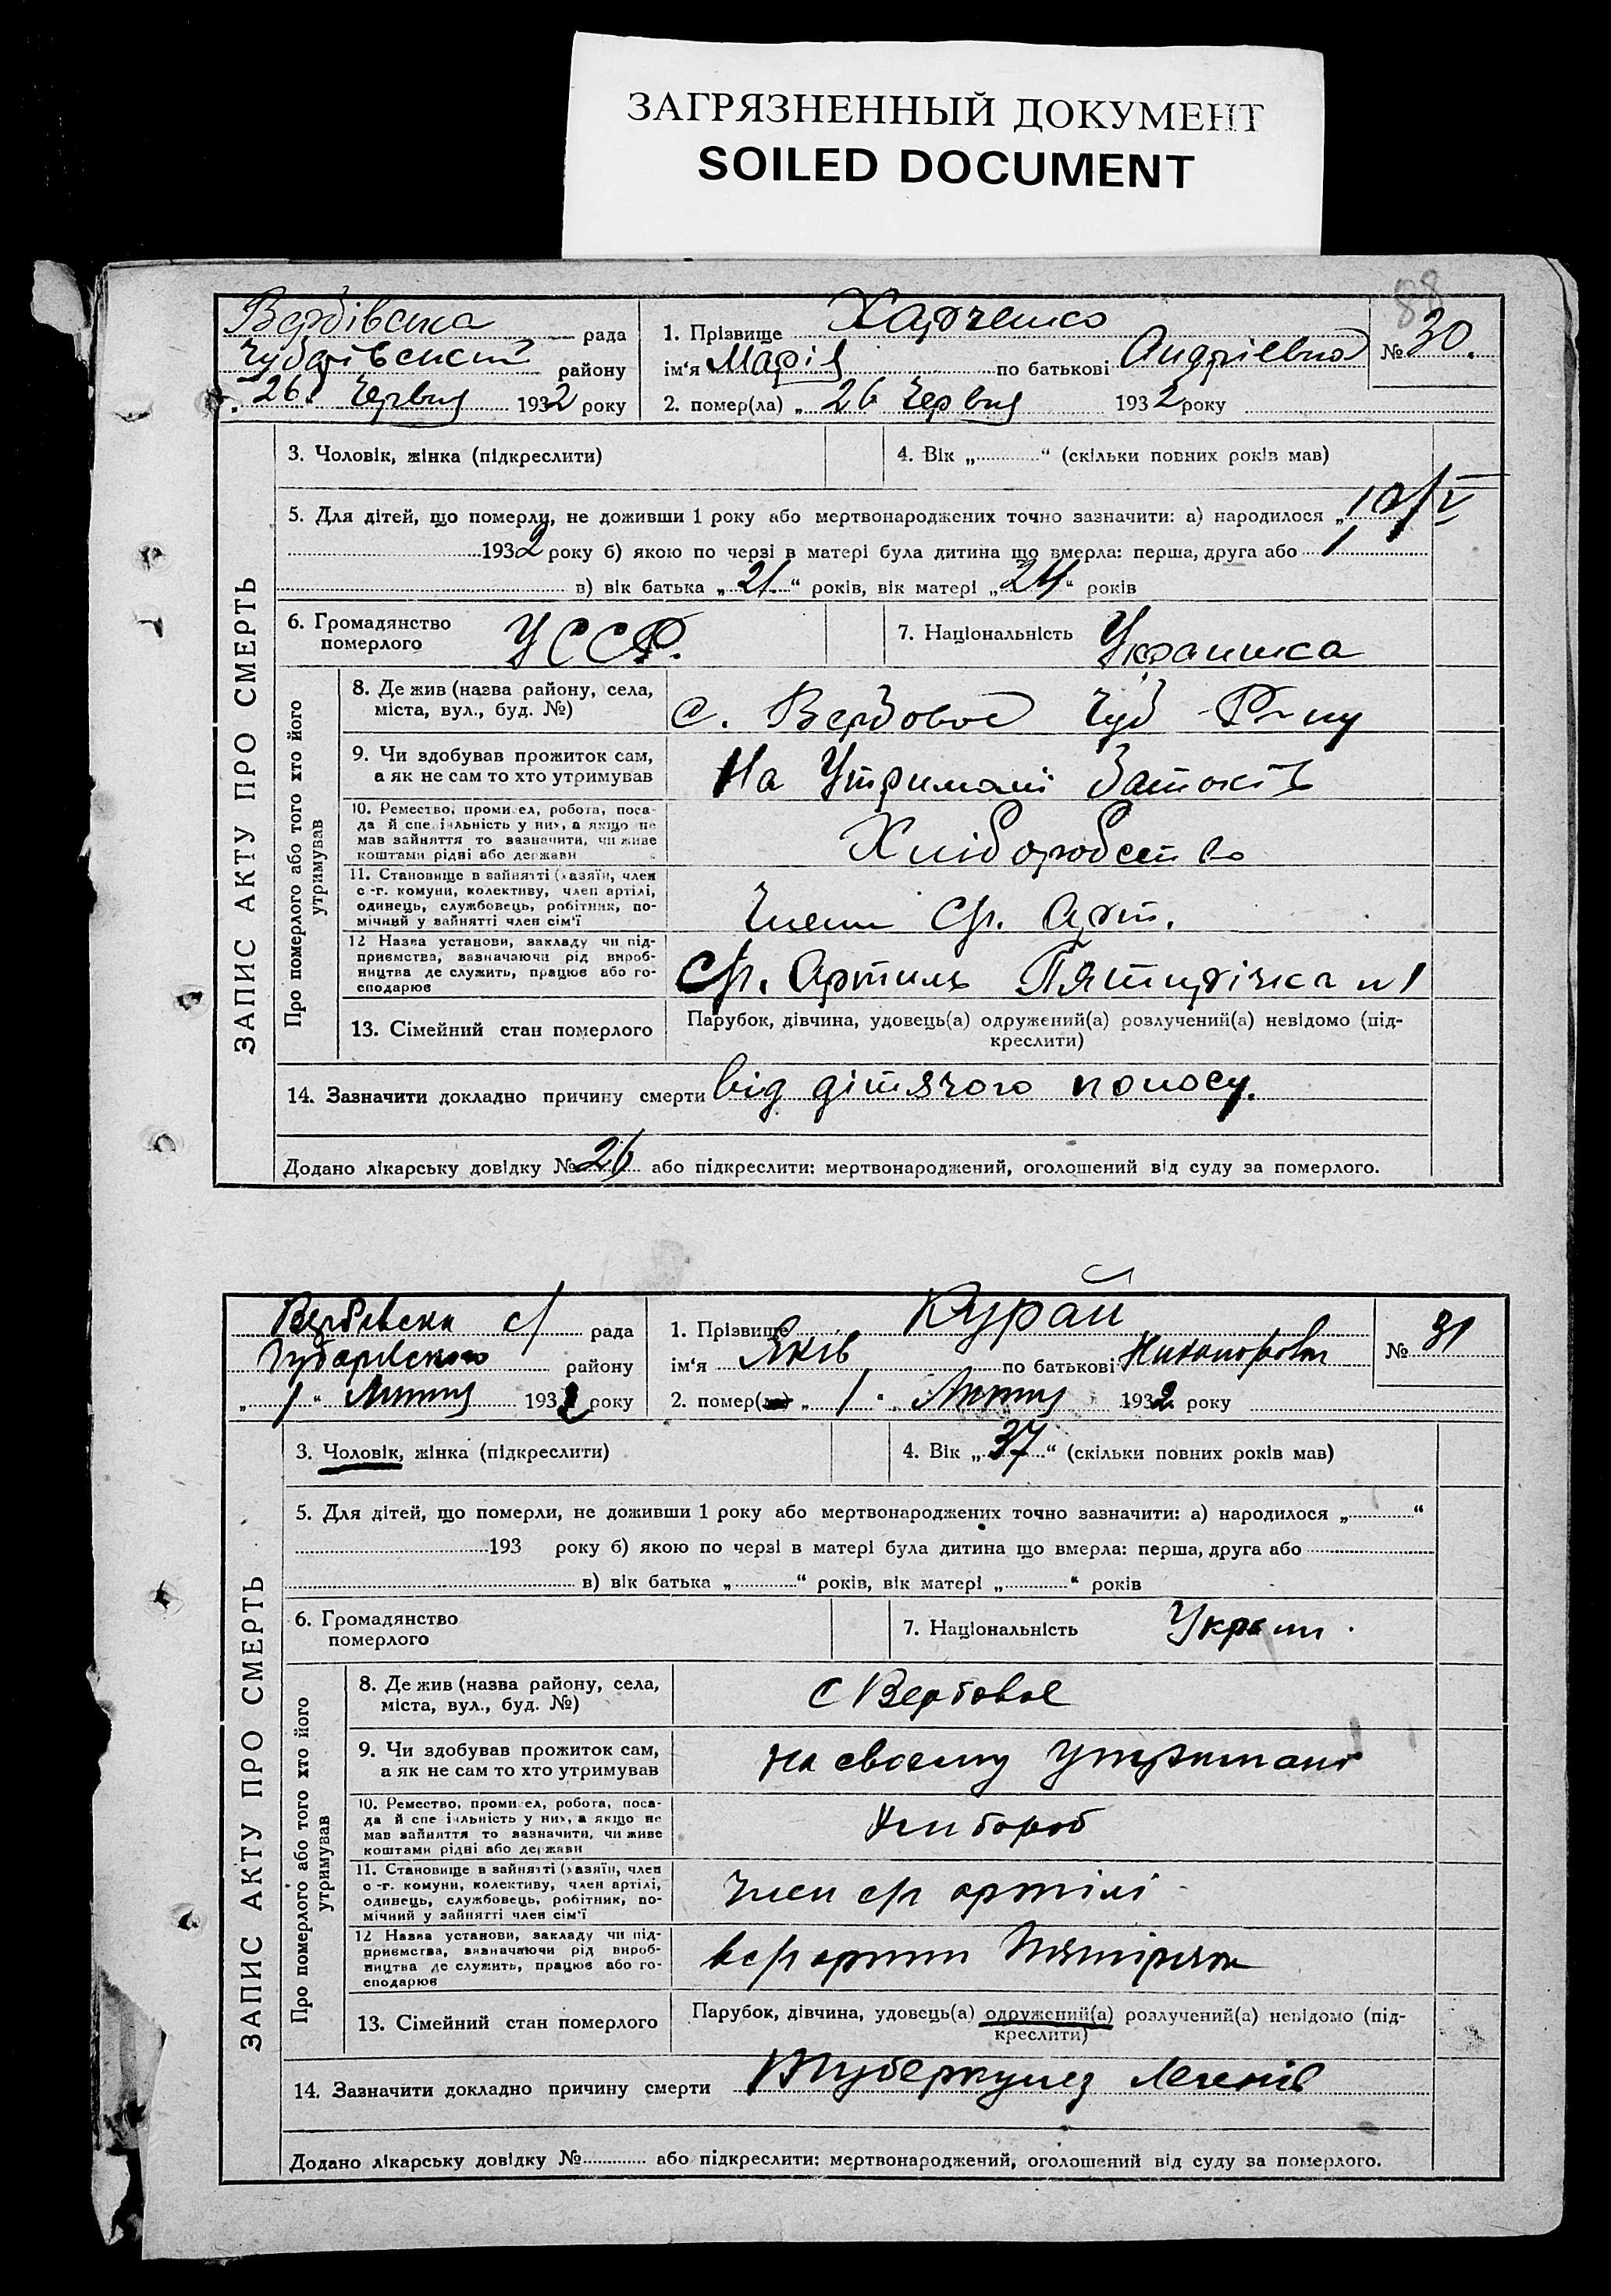 ЗАГРЯЗНЕННЫЙ ДОКУМЕНТ
SOILED DOCUMENT
88
Вербівська рада
району
„26“ Червня 1932 року
1. Прізвище Харченко
ім'я Марія по батькові Андріевна
2. помер(ла) „ 26 Червня 1932 року
№ 30.
ЗАПИС АКТУ ПРО СМЕРТЬ
3. Чоловік, жінка (підкреслити)
4. Вік „ “ (скільки повних років мав)
5. Для дітей, що померли, не доживши 1 року або мертвонароджених точно зазначити: а) народилося „
1932 року б) якою по черзі в матері була дитина що вмерла: перша, друга або 1
в) вік батька „21“ років, вік матері „24“ років
6. Громадянство
померлого
УССР.
7. Національність Украинка
Про померлого або того хто його
утримував
8. Де жив (назва району, села,
міста, вул., буд. №)
с. Вербовое Чуб Р-ну
9. Чи здобував прожиток сам,
а як не сам то хто утримував
На Утримані
10. Ремество, промисел, робота, поса-
да й спеціяльність у них, а якщо не
мав зайняття то зазначити, чи живе
коштами рідні або держави
Хліборобство
11. Становище в зайнятті (хазяїн, член
с.-г. комуни, колективу, член артілі,
одинець, службовець, робітник, по-
мічний у зайнятті член сім'ї
Член С/г. Арт.
12 Назва установи, закладу чи під-
приємства, зазначаючи рід вироб-
ництва де служить, працює або го-
сподарює
С/г. Артиль Пятирічка №1
13. Сімейний стан померлого
Парубок, дівчина, удовець(а) одружений(а) розлучений(а) невідомо (під-
креслити)
14. Зазначити докладно причину смерти від дітячого поносу.
Додано лікарську довідку № 26 або підкреслити: мертвонароджений, оголошений від суду за померлого.
Вербівська с/ рада
району
„1“ Липня 1932 року
1. Прізвище Курай
ім'я Яків по батькові
2. помер( ) „ 1 “ Липня 1932 року
№ 31
ЗАПИС АКТУ ПРО СМЕРТЬ
3. Чоловік, жінка (підкреслити)
4. Вік „37“ (скільки повних років мав)
5. Для дітей, що померли, не доживши 1 року або мертвонароджених точно зазначити: а) народилося „ “
193 року б) якою по черзі в матері була дитина що вмерла: перша, друга або
в) вік батька „ “ років, вік матері „ “ років
6. Громадянство
померлого
7. Національність Украин.
Про померлого або того хто його
утримував
8. Де жив (назва району, села,
міста, вул., буд. №)
с Вербовое
9. Чи здобував прожиток сам,
а як не сам то хто утримував
на своему утримані
10. Ремество, промисел, робота, поса-
да й спеціяльність у них, а якщо не
мав зайняття то зазначити, чи живе
коштами рідні або держави
Хлибороб
11. Становище в зайнятті (хазяїн, член
с.-г. комуни, колективу, член артілі,
одинець, службовець, робітник, по-
мічний у зайнятті член сім'ї
член с/г артілі
12 Назва установи, закладу чи під-
приємства, зазначаючи рід вироб-
ництва де служить, працює або го-
сподарює
в с/г
13. Сімейний стан померлого
Парубок, дівчина, удовець(а) одружений(а) розлучений(а) невідомо (під-
креслити)
14. Зазначити докладно причину смерти Туберкулез Легенів
Додано лікарську довідку № або підкреслити: мертвонароджений, оголошений від суду за померлого.